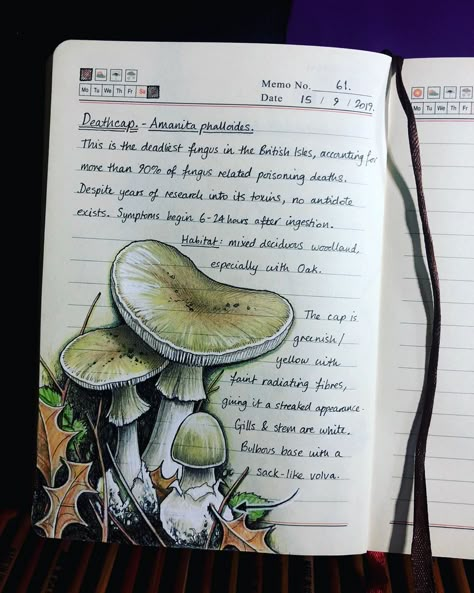 Memo No. 61.
Mo Tu We Th Fr Sa
Date 15 / 9 / 2019.
Deathcap. - Amanita phalloides.
This is the deadliest fungus in the British Isles, accounting for
more than 90% of fungus related poisoning deaths.
Despite years of research into its toxins, no antidote
exists. Symptoms begin 6-24 hours after ingestion.
Habitat: mixed deciduous woodland,
especially with Oak.
The cap is
greenish/
yellow with
faint radiating fibres,
giving it a streaked appearance.
Gills & stem are white.
Bulbous base with a
sack-like volva.
Mo Tu We Th Fr